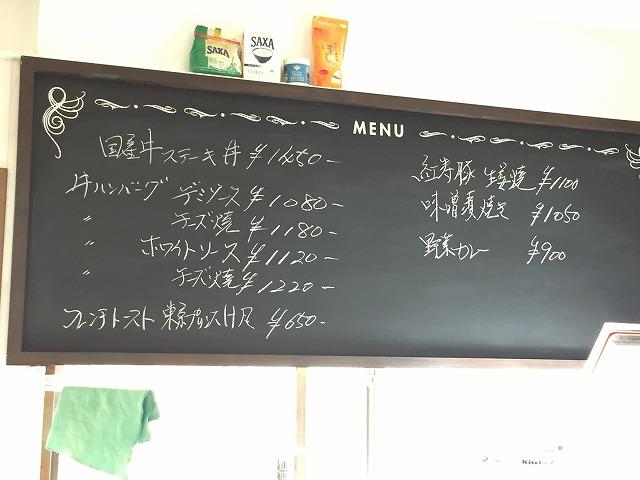 SAXA
SAXA
MENU
国産牛ステーキ丼 ¥1450-
牛ハンバーグ デミソース ¥1080-
〃 チーズ焼 ¥1180-
〃 ホワイトソース ¥1120-
〃 チーズ焼 ¥1220-
フレンチトースト 東京 ¥650-
紅寿豚 生姜焼 ¥1100
味噌漬焼き ¥1050
野菜カレー ¥900